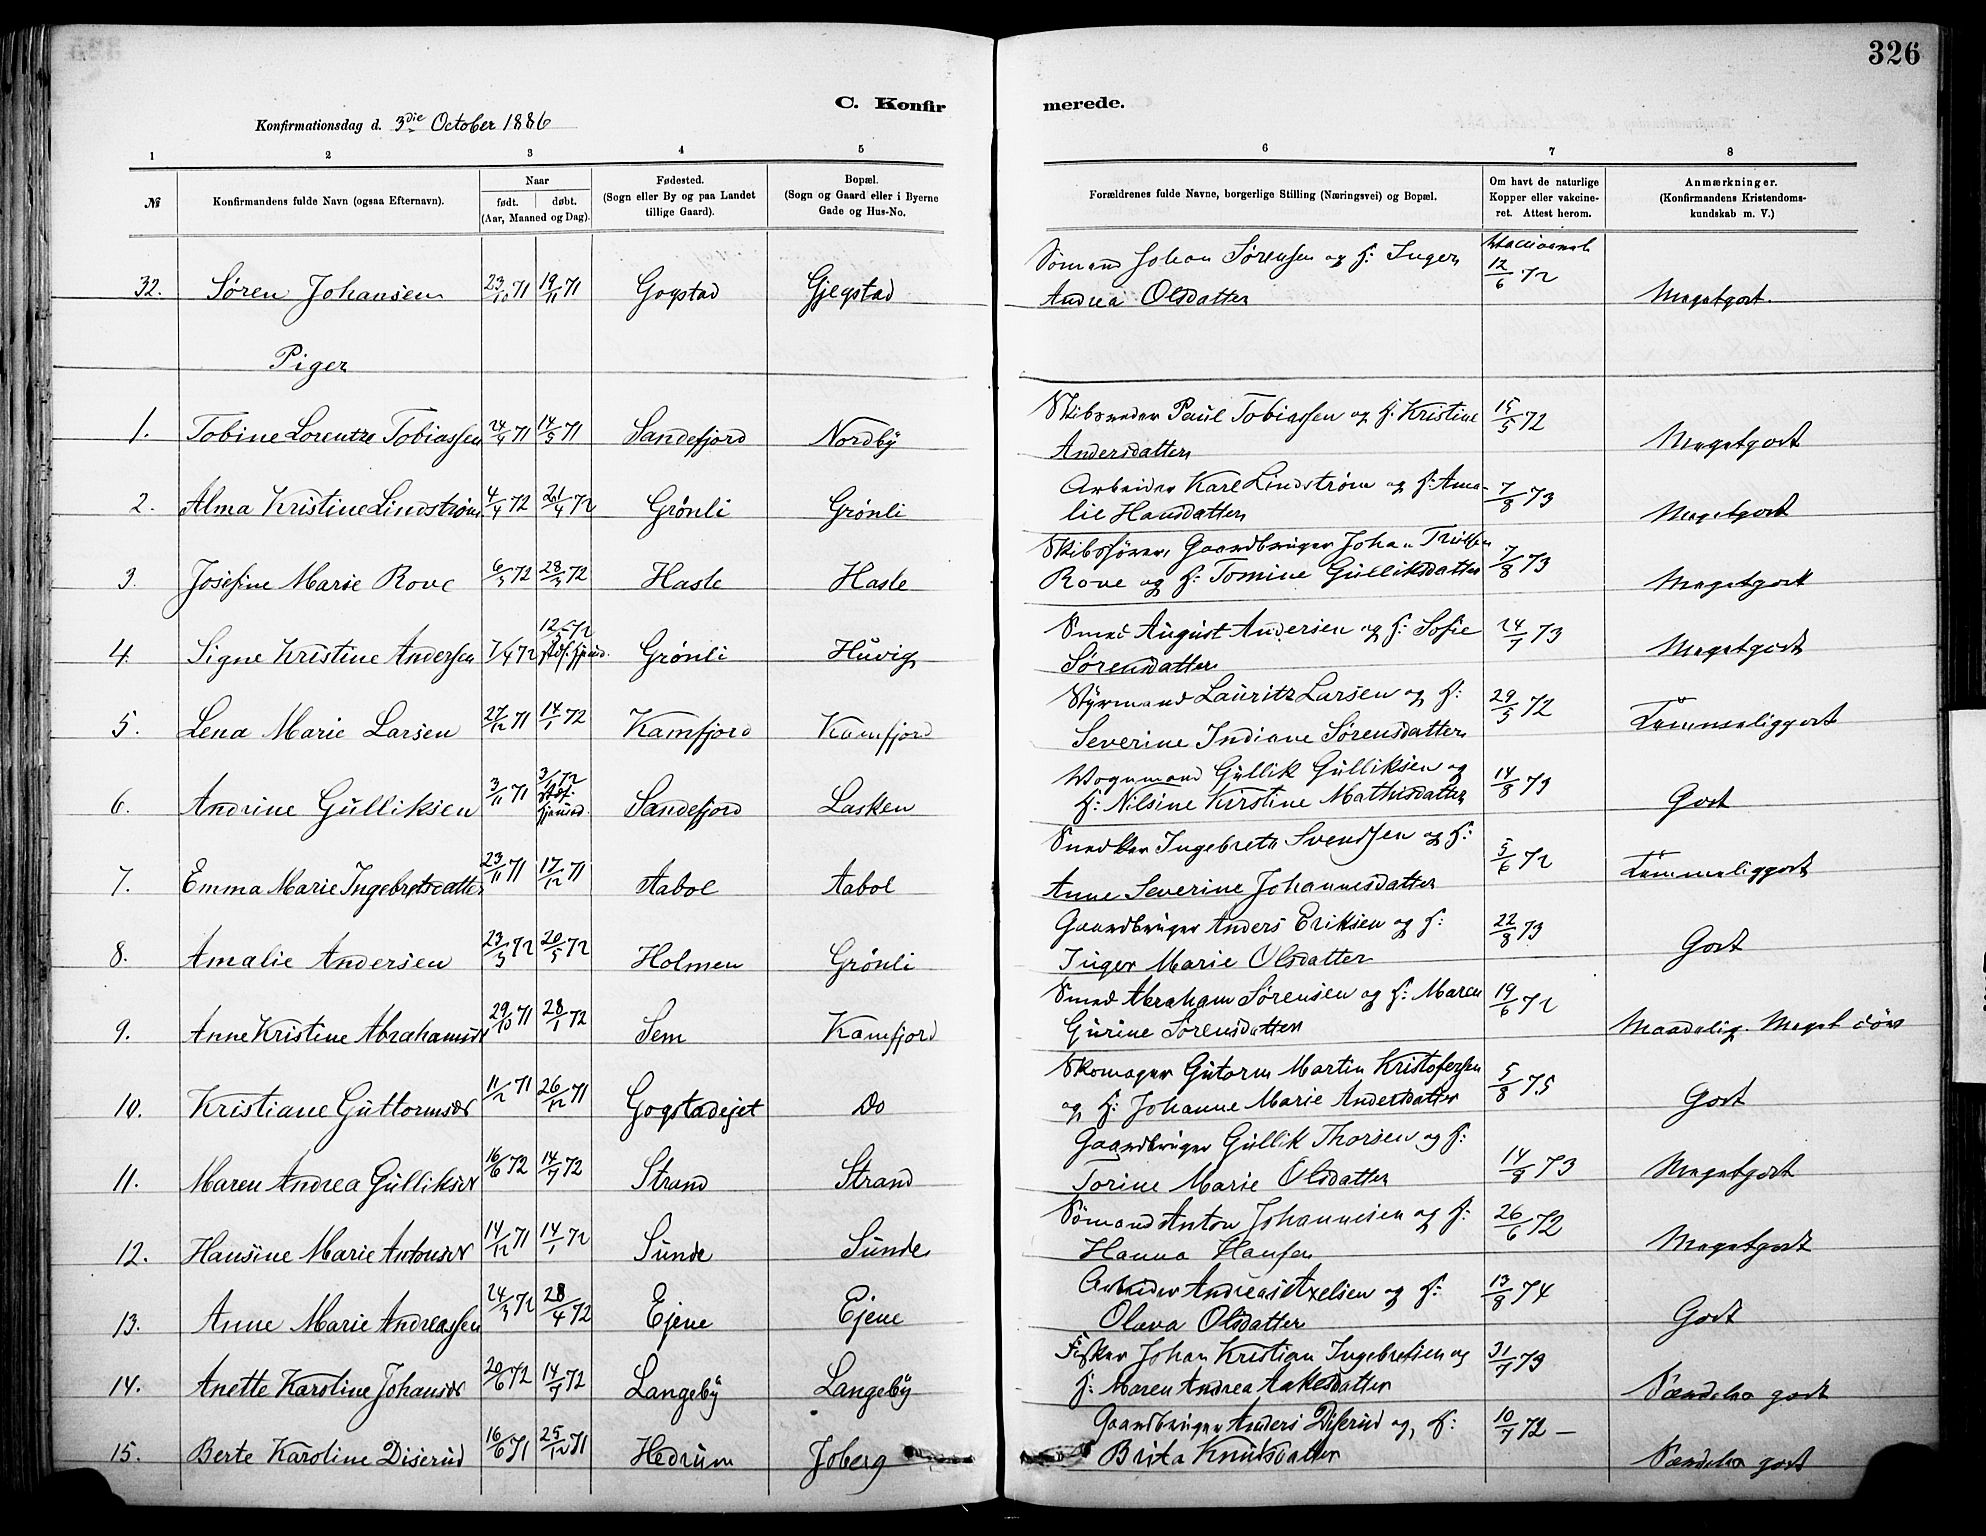 326
C. Konfir merede.
Konfirmationsdag d. 3die October 1886
1 2 3 4 5 6 7 8
№ Konfirmandens fulde Navn (ogsaa Efternavn). Naar født. døbt. (Aar, Maaned og Dag). Fødested. (Sogn eller By og paa Landet tillige Gaard). Bopæl. (Sogn og Gaard eller i Byerne Gade og Hus-No. Forældrenes fulde Navne, borgerlige Stilling (Næringsvei) og Bopæl. Om havt de naturlige Kopper eller vakcineret. Attest herom. Anmærkninger. (Konfirmandens Kristendomskundskab m. V.)
32. Søren Johansen 23/10 71 19/11 71 Gogstad Gjegstad Sømand Johan Sørensen og H: Inger 12/6 72 Megetgodt.
Andrea Olsdatter
Piger
1. Tobine Lorentze Tobiassen 24/4 71 14/5 71 Sandefjord Nordby Skibsreder Paul Tobiassen og H. Kristine 15/5 72 Megetgodt
Andersdatter
2. Alma Kristine Lindstrøm 4/4 72 21/4 72 Grönli Grönli Arbeider Karl Lindstrøm og H: Ama- 7/8 73 Megetgodt
lie Hansdatter
3. Josefine Marie Rove 6/3 72 28/3 72 Hasle Hasle Skibsfører, Gaardbruger Johan 7/8 73 Megetgodt
Rove og H: Tomine Gulliksdatter
4. Signe Kristine Andersen 7/4 72 12/5 72 Grönli Huvig Smed August Andersen og H: Sofie 24/7 73 Megetgodt
Sørensdatter
5. Lena Marie Larsen 27/12 71 14/1 72 Kamfjord Kamfjord Styrmand Lauritz Larsen og H: 29/5 72 Temmeliggodt
Severine Indiane Sørensdatter
6. Andrine Gulliksen 3/11 71 3/1 72 Sandefjord Lasken Vognmand Gullik Gulliksen og 14/8 73 Godt
H: Nilsine Kirstine Mathisdatter
7. Emma Marie Ingebretsdatter 23/11 71 17/12 71 Aabol Aabol Snedker Ingebreth Svendsen og H: 5/6 72 Temmeliggodt
Anne Severine Johannesdatter
8. Amalie Andersen 23/3 72 20/5 72 Holmen Grönli Gaardbruger Anders Eriksen og H: 22/8 73 Godt
Inger Marie Olsdatter
9. Anne Kristine Abrahamsdr 29/10 71 28/1 72 Sem Kamfjord Smed Abraham Sørensen og H: Maren 19/6 72 Maadelig. Meget döv
Gurine Sorensdatter
10. Kristiane Guttormsdr 11/12 71 26/12 71 Gogstadejet Do Skomager Gutorm Martin Kristofersen 5/8 75 Godt
og H: Johanne Marie Andersdatter
11. Maren Andrea Gulliksdr 16/6 72 14/7 72 Strand Strand Gaardbruger Gullik Thorsen og H: 14/8 73 Megetgodt
Torine Marie Olsdatter
12. Hansine Marie Antonsdr 14/12 71 14/1 72 Sunde Sunde Sömand Anton Johannesen og H: 26/6 72 Megetgodt
Hanna Hansen
13. Anne Marie Andreassen 24/3 72 28/4 72 Ejene Ejene Arbeider Andreas Axelsen og H: 13/8 74 Godt
Olava Olsdatter
14. Anette Karoline Johansdr 20/6 72 14/7 72 Langeby Langeby Fisker Johan Kristian Ingebretsen og 31/7 73 Særdeles godt
H: Maren Andrea Aakesdatter
15. Berte Karoline Diserud 16/6 71 25/12 71 Hedrum Joberg Gaardbruger Anders Diserud og H: 10/7 72 — Særdeles godt
Brita Knudsdatter